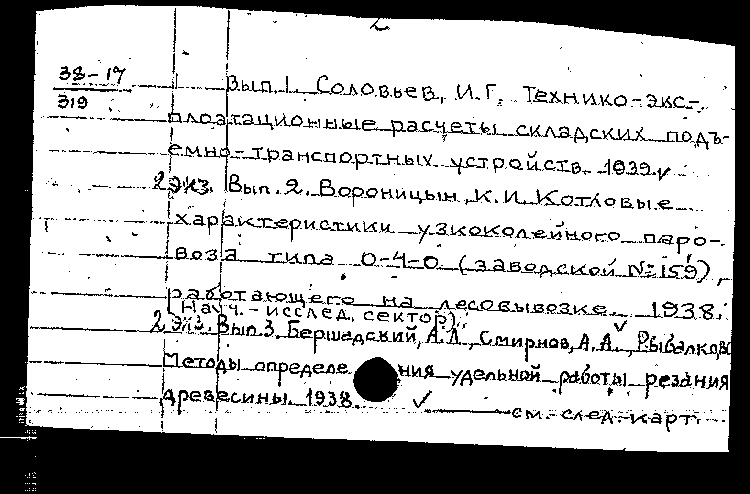 2
38-17
319
Вып.1. Соловьев, И.Г. Технико-экс-
плоатационные расчеты складских подъ-
емно-транспортных устройств. 1939.
2 экз. Вып.2. Вороницын, К.И. Котловые
характеристики узкоколейного паро-
воза типа 0-4-0 (заводской №159),
работающего на лесовывозке. 1938.
(Науч.-исслед. сектор).
2 экз. Вып.3. Бершадский, А.Л., Смирнов, А.А., Рыбалков
Методы определения удельной работы резания
древесины. 1938.
см. след. карт.